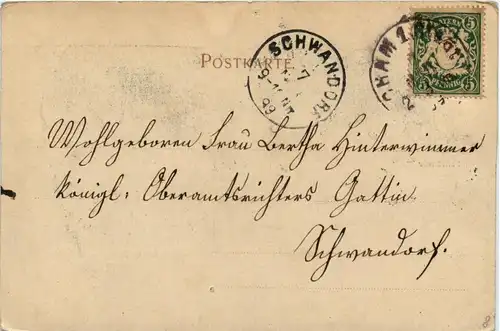 POSTKARTE
SCHWANDORF
CHAM 1
BAYERN
5 5
5 PFENNIG 5
Wohlgeboren Frau Bertha Hinterwimmer
Königl: Oberamtsrichters Gattin
Schwandorf.